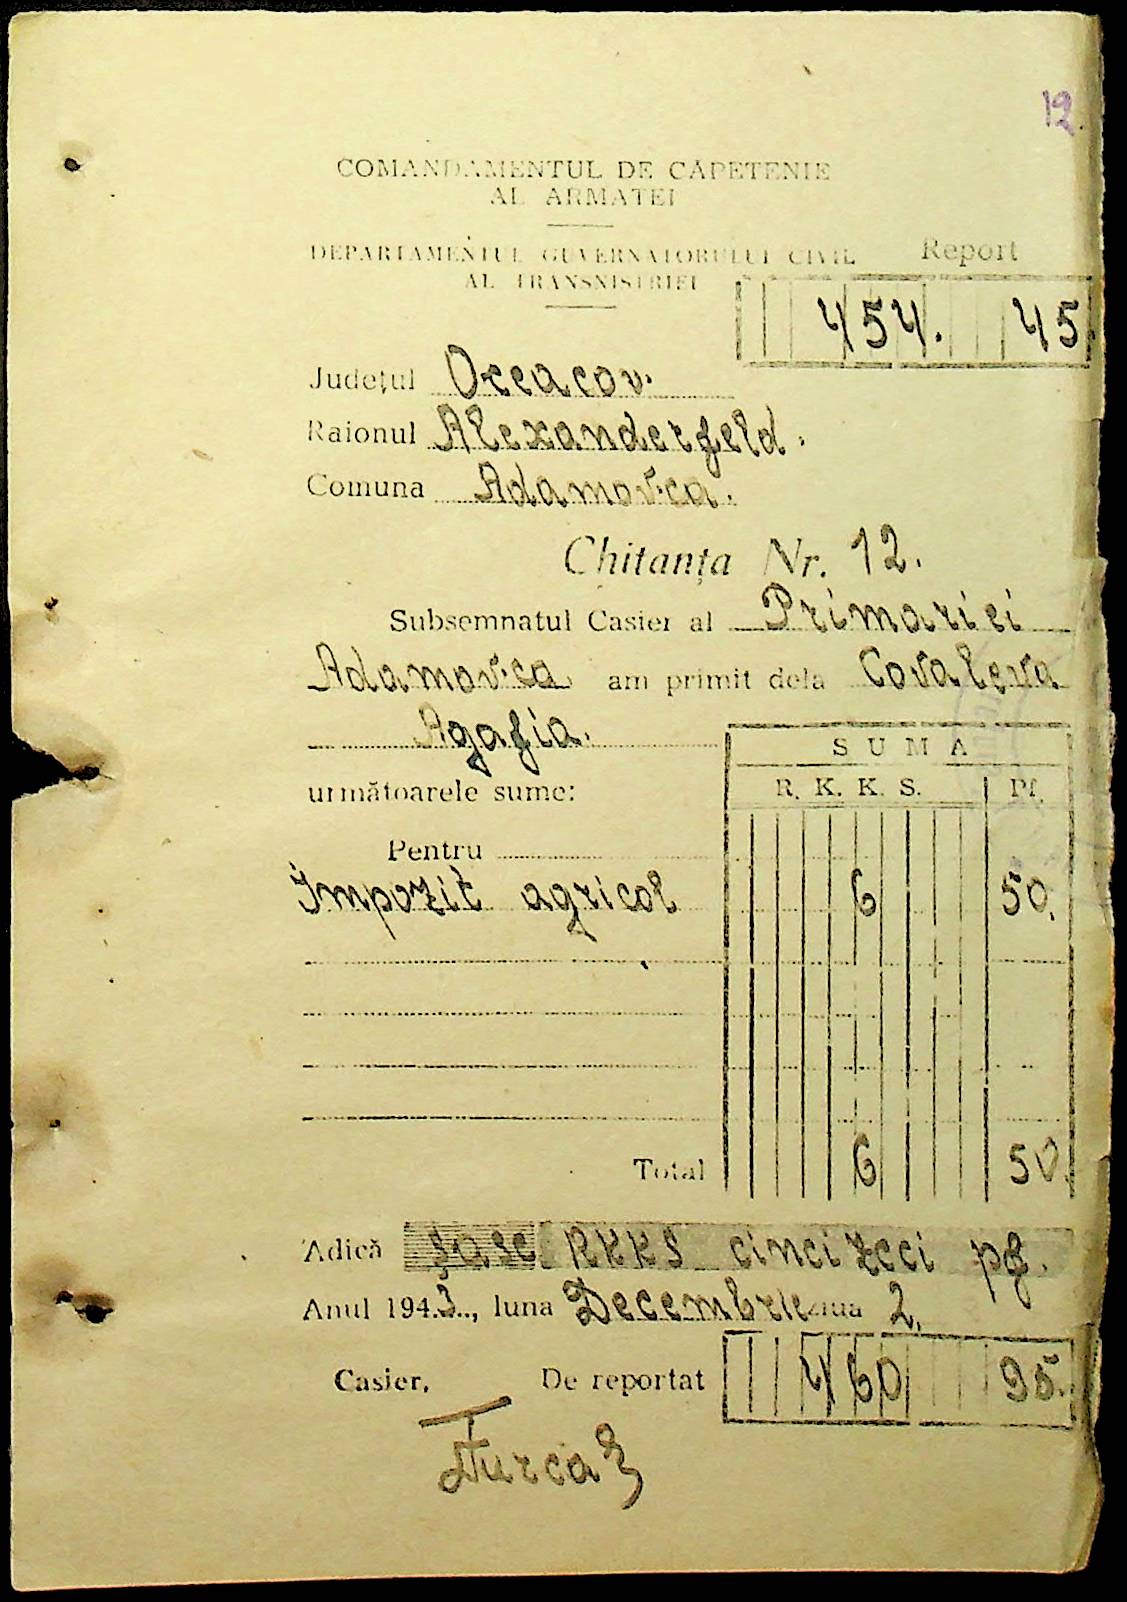 12.
COMANDAMENTUL DE CĂPETENIE
AL ARMATEI
DEPARTAMENTUL GUVERNATORULUI CIVIL
AL TRANSNISTRIEI
Report
454. 45
Județul Oceacov.
Raionul Alexanderfeld.
Comuna Adamovca.
Chitanța Nr. 12.
Subsemnatul Casier al Primariei
Adamovca am primit dela Covaleva
Agafia.
SUMA
următoarele sume: R. K. K. S. Pf.
Pentru
Impozit agricol 6 50.
Total 6 50.
Adică șase RKKS cincizeci pf.
Anul 1943., luna Decembrie ziua 2.
Casier, De reportat 460 95.